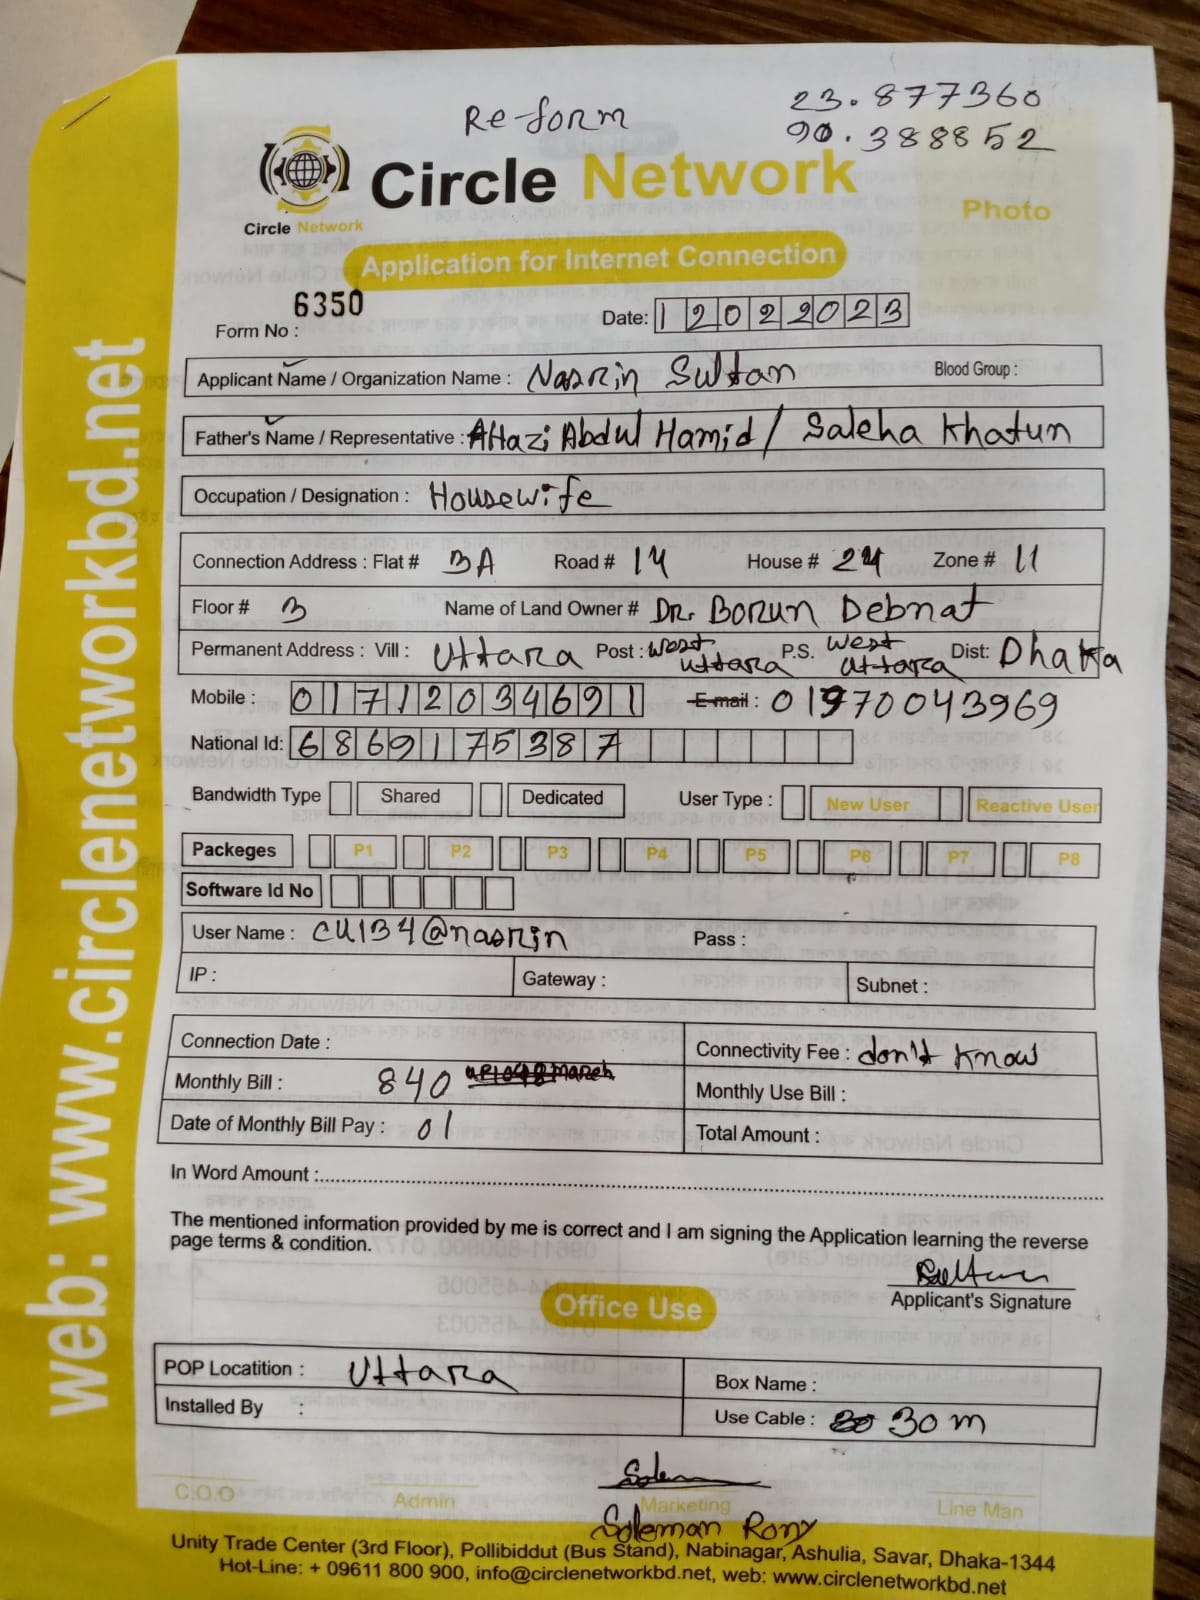 Re-form
23.877360
90.388852
Circle Network
Circle Network
Photo
Application for Internet Connection
6350
Form No :
Date: 12022023
Applicant Name / Organization Name : Nasrin Sultan Blood Group :
Father's Name / Representative : AHazi Abdul Hamid / Saleha Khatun
Occupation / Designation : Housewife
Connection Address : Flat # 3A Road # 14 House # 24 Zone # 11
Floor # 3 Name of Land Owner # Dr. Borun Debnat
Permanent Address : Vill : Uttara Post : West Uttara P.S. West Uttara Dist: Dhaka
Mobile : 01712034691 E-mail : 01970043969
National Id: 6869175387
Bandwidth Type Shared Dedicated User Type : New User Reactive User
Packeges P1 P2 P3 P4 P5 P6 P7 P8
Software Id No
User Name : CU134@nasrin Pass :
IP : Gateway : Subnet :
Connection Date : Connectivity Fee : don't know
Monthly Bill : 840 Monthly Use Bill :
Date of Monthly Bill Pay : 01 Total Amount :
In Word Amount :
The mentioned information provided by me is correct and I am signing the Application learning the reverse
page terms & condition.
Applicant's Signature
Office Use
POP Locatition : Uttara Box Name :
Installed By : Use Cable : 30 m
C.O.O Admin Marketing Line Man
Soleman Rony
Unity Trade Center (3rd Floor), Pollibiddut (Bus Stand), Nabinagar, Ashulia, Savar, Dhaka-1344
Hot-Line: + 09611 800 900, info@circlenetworkbd.net, web: www.circlenetworkbd.net
web: www.circlenetworkbd.net